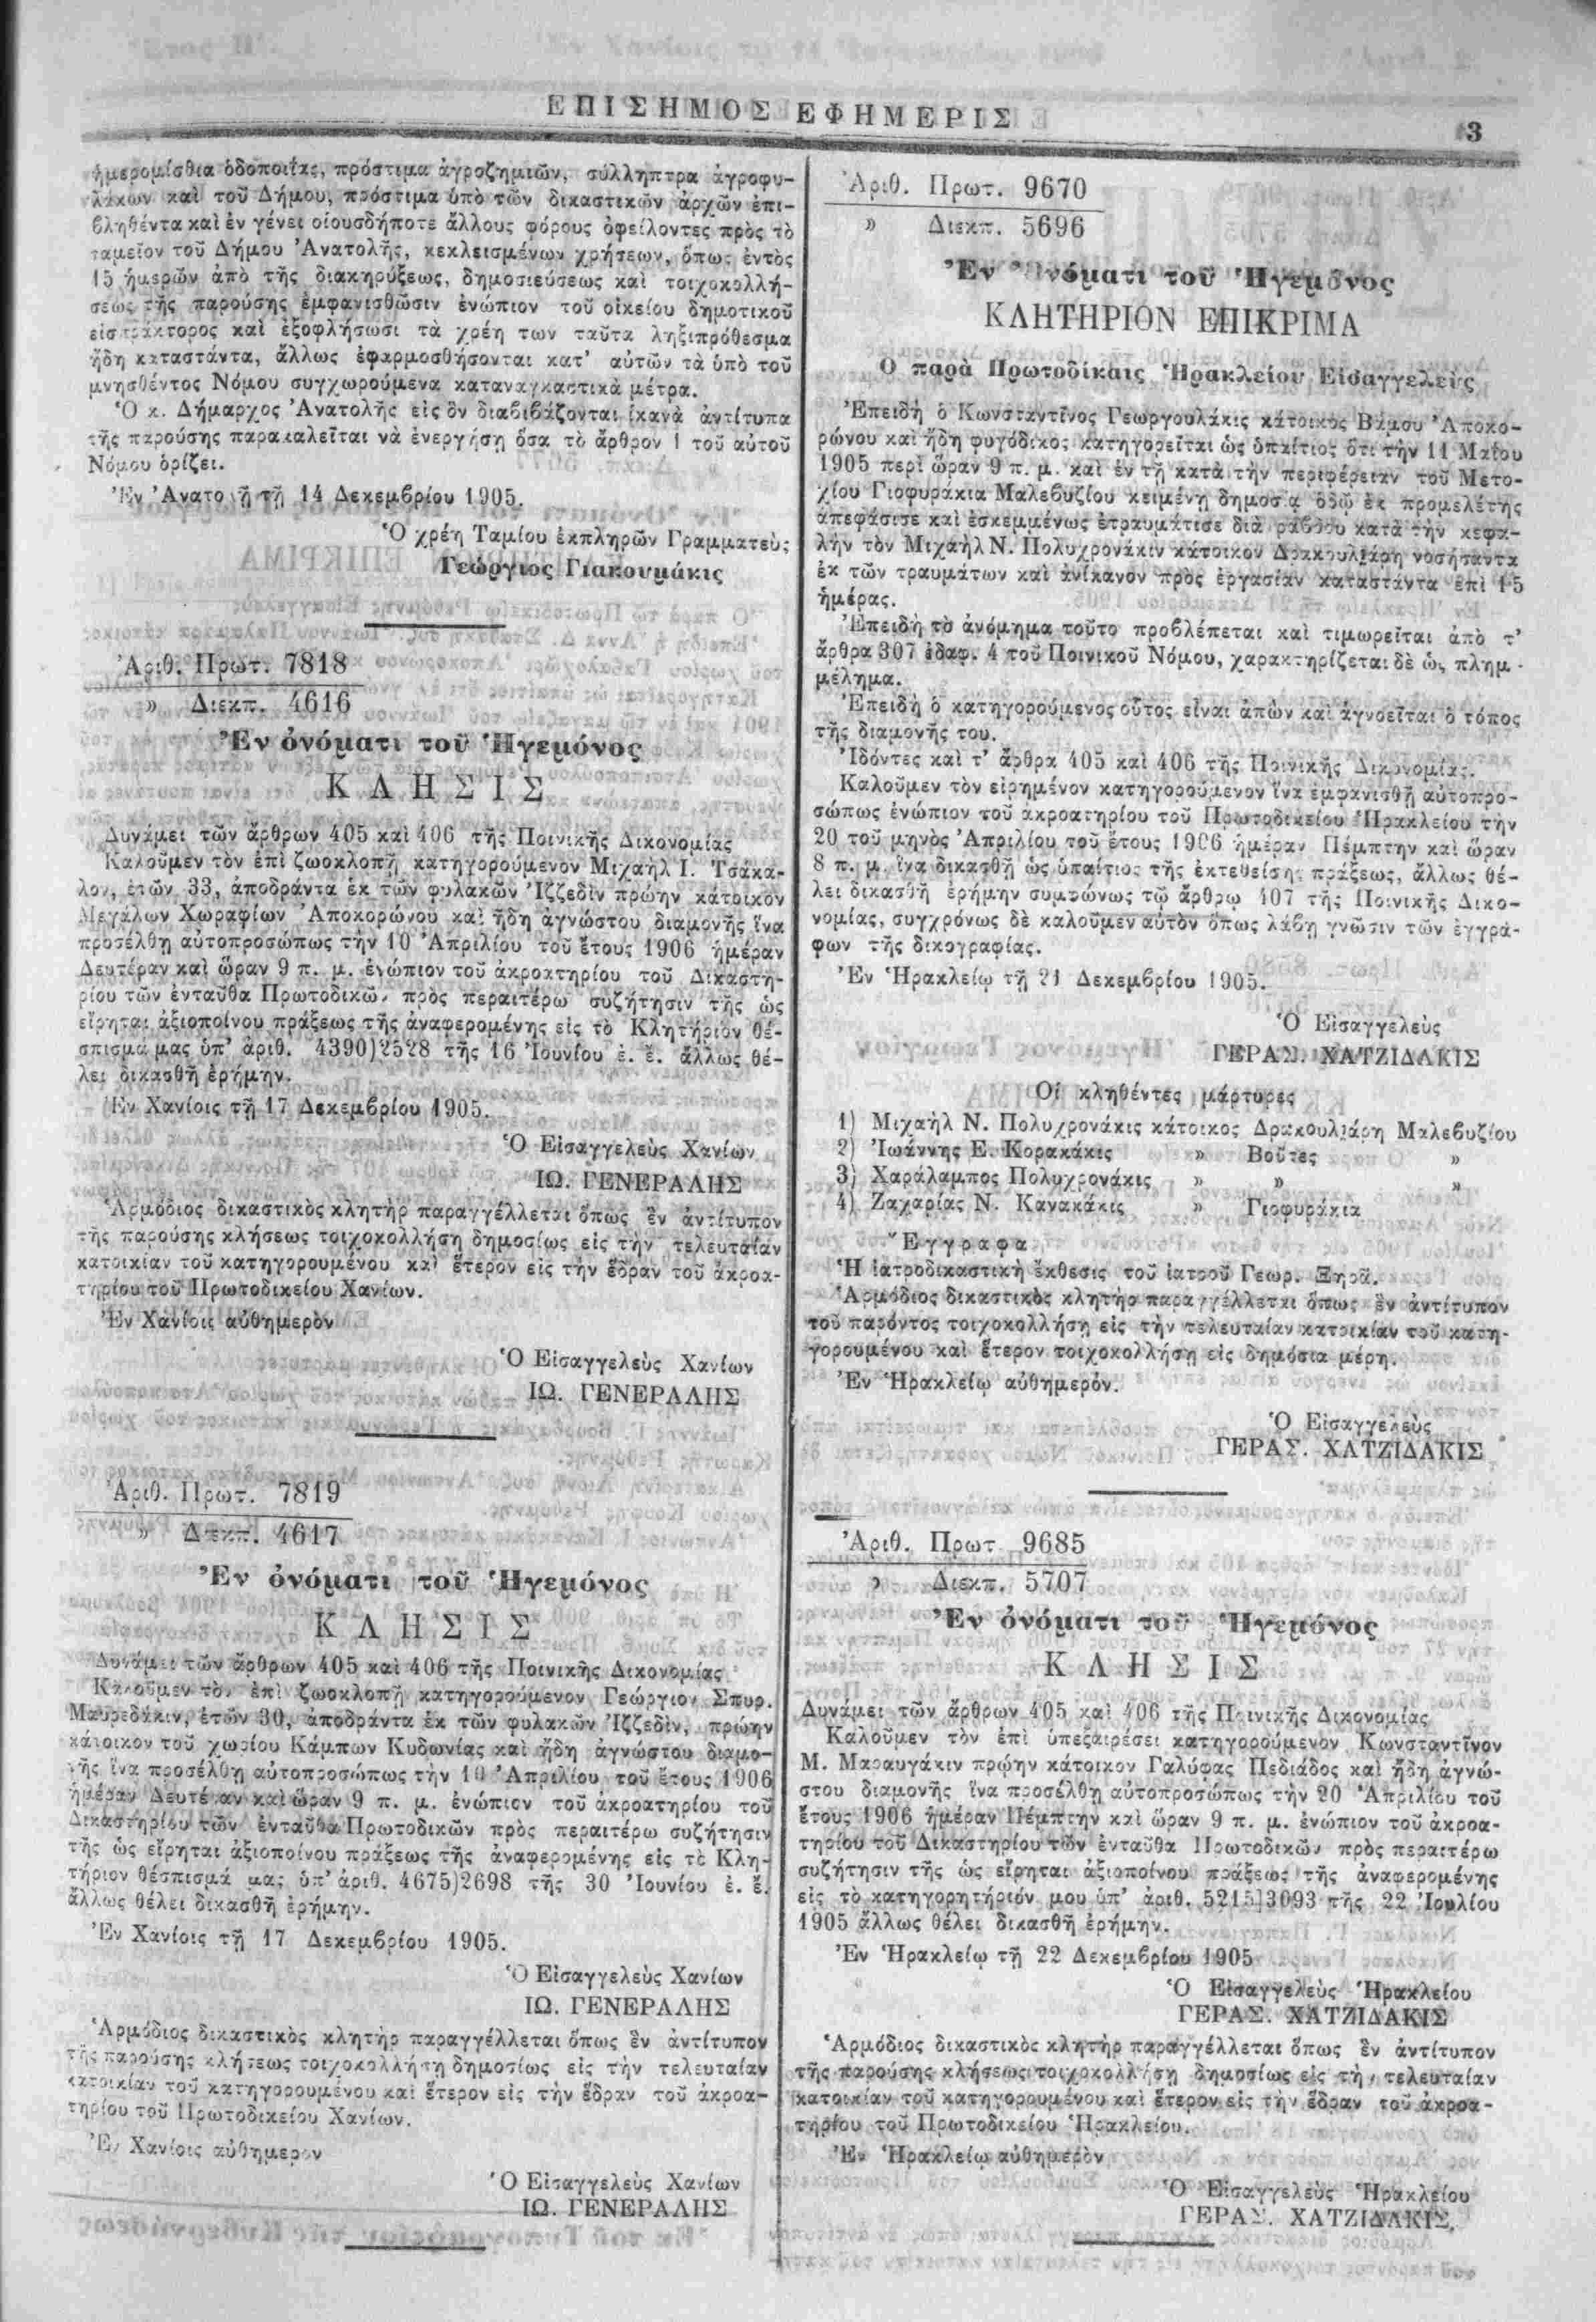 ΕΠΙΣΗΜΟΣ ΕΦΗΜΕΡΙΣ
3
ἡμερομίσθια ὁδοποιΐας, πρόστιμα ἀγροζημιῶν, σύλληπτρα ἀγροφυ-
λάκων καὶ τοῦ Δήμου, πρόστιμα ὑπὸ τῶν δικαστικῶν ἀρχῶν ἐπι-
βληθέντα καὶ ἐν γένει οἱουσδήποτε ἄλλους φόρους ὀφείλοντες πρὸς τὸ
ταμεῖον τοῦ Δήμου Ἀνατολῆς, κεκλεισμένων χρήσεων, ὅπως ἐντὸς
15 ἡμερῶν ἀπὸ τῆς διακηρύξεως, δημοσιεύσεως καὶ τοιχοκολλή-
σεως τῆς παρούσης ἐμφανισθῶσιν ἐνώπιον τοῦ οἰκείου δημοτικοῦ
εἰσπράκτορος καὶ ἐξοφλήσωσι τὰ χρέη των ταῦτα ληξιπρόθεσμα
ἤδη καταστάντα, ἄλλως ἐφαρμοσθήσονται κατ' αὐτῶν τὰ ὑπὸ τοῦ
μνησθέντος Νόμου συγχωρούμενα καταναγκαστικὰ μέτρα.
Ὁ κ. Δήμαρχος Ἀνατολῆς εἰς ὃν διαβιβάζονται ἱκανὰ ἀντίτυπα
τῆς παρούσης παρακαλεῖται νὰ ἐνεργήσῃ ὅσα τὸ ἄρθρον 1 τοῦ αὐτοῦ
Νόμου ὁρίζει.
Ἐν Ἀνατολῇ τῇ 14 Δεκεμβρίου 1905.
Ὁ χρέη Ταμίου ἐκπληρῶν Γραμματεὺς
Γεώργιος Γιακουμάκις
Ἀριθ. Πρωτ. 7818
» Διεκπ. 4616
Ἐν ὀνόματι τοῦ Ἡγεμόνος
ΚΛΗΣΙΣ
Δυνάμει τῶν ἄρθρων 405 καὶ 406 τῆς Ποινικῆς Δικονομίας
Καλοῦμεν τὸν ἐπὶ ζωοκλοπῇ κατηγορούμενον Μιχαὴλ Ι. Τσάκα-
λον, ἐτῶν 33, ἀποδράντα ἐκ τῶν φυλακῶν Ἰζζεδὶν πρώην κάτοικον
Μεγάλων Χωραφίων Ἀποκορώνου καὶ ἤδη ἀγνώστου διαμονῆς ἵνα
προσέλθῃ αὐτοπροσώπως τὴν 10 Ἀπριλίου τοῦ ἔτους 1906 ἡμέραν
Δευτέραν καὶ ὥραν 9 π. μ. ἐνώπιον τοῦ ἀκροατηρίου τοῦ Δικαστη-
ρίου τῶν ἐνταῦθα Πρωτοδικῶν πρὸς περαιτέρω συζήτησιν τῆς ὡς
εἴρηται ἀξιοποίνου πράξεως τῆς ἀναφερομένης εἰς τὸ Κλητήριον θέ-
σπισμά μας ὑπ' ἀριθ. 4390)2528 τῆς 16 Ἰουνίου ἐ. ἔ. ἄλλως θέ-
λει δικασθῆ ἐρήμην.
Ἐν Χανίοις τῇ 17 Δεκεμβρίου 1905.
Ὁ Εἰσαγγελεὺς Χανίων
ΙΩ. ΓΕΝΕΡΑΛΗΣ
Ἁρμόδιος δικαστικὸς κλητὴρ παραγγέλλεται ὅπως ἓν ἀντίτυπον
τῆς παρούσης κλήσεως τοιχοκολλήσῃ δημοσίως εἰς τὴν τελευταίαν
κατοικίαν τοῦ κατηγορουμένου καὶ ἕτερον εἰς τὴν ἕδραν τοῦ ἀκροα-
τηρίου τοῦ Πρωτοδικείου Χανίων.
Ἐν Χανίοις αὐθημερὸν
Ὁ Εἰσαγγελεὺς Χανίων
ΙΩ. ΓΕΝΕΡΑΛΗΣ
Ἀριθ. Πρωτ. 7819
» Διεκπ. 4617
Ἐν ὀνόματι τοῦ Ἡγεμόνος
ΚΛΗΣΙΣ
Δυνάμει τῶν ἄρθρων 405 καὶ 406 τῆς Ποινικῆς Δικονομίας
Καλοῦμεν τὸν ἐπὶ ζωοκλοπῇ κατηγορούμενον Γεώργιον Σπυρ.
Μαυρεδάκιν, ἐτῶν 30, ἀποδράντα ἐκ τῶν φυλακῶν Ἰζζεδὶν, πρώην
κάτοικον τοῦ χωρίου Κάμπων Κυδωνίας καὶ ἤδη ἀγνώστου διαμο-
νῆς ἵνα προσέλθῃ αὐτοπροσώπως τὴν 10 Ἀπριλίου τοῦ ἔτους 1906
ἡμέραν Δευτέραν καὶ ὥραν 9 π. μ. ἐνώπιον τοῦ ἀκροατηρίου τοῦ
Δικαστηρίου τῶν ἐνταῦθα Πρωτοδικῶν πρὸς περαιτέρω συζήτησιν
τῆς ὡς εἴρηται ἀξιοποίνου πράξεως τῆς ἀναφερομένης εἰς τὸ Κλη-
τήριον θέσπισμά μας ὑπ' ἀριθ. 4675)2698 τῆς 30 Ἰουνίου ἐ. ἔ.
ἄλλως θέλει δικασθῆ ἐρήμην.
Ἐν Χανίοις τῇ 17 Δεκεμβρίου 1905.
Ὁ Εἰσαγγελεὺς Χανίων
ΙΩ. ΓΕΝΕΡΑΛΗΣ
Ἁρμόδιος δικαστικὸς κλητὴρ παραγγέλλεται ὅπως ἓν ἀντίτυπον
τῆς παρούσης κλήσεως τοιχοκολλήσῃ δημοσίως εἰς τὴν τελευταίαν
κατοικίαν τοῦ κατηγορουμένου καὶ ἕτερον εἰς τὴν ἕδραν τοῦ ἀκροα-
τηρίου τοῦ Πρωτοδικείου Χανίων.
Ἐν Χανίοις αὐθημερὸν
Ὁ Εἰσαγγελεὺς Χανίων
ΙΩ. ΓΕΝΕΡΑΛΗΣ
Ἀριθ. Πρωτ. 9670
» Διεκπ. 5696
Ἐν Ὀνόματι τοῦ Ἡγεμόνος
ΚΛΗΤΗΡΙΟΝ ΕΠΙΚΡΙΜΑ
Ὁ παρὰ Πρωτοδίκαις Ἡρακλείου Εἰσαγγελεὺς
Ἐπειδὴ ὁ Κωνσταντῖνος Γεωργουλάκις κάτοικος Βάμου Ἀποκο-
ρώνου καὶ ἤδη φυγόδικος κατηγορεῖται ὡς ὑπαίτιος ὅτι τὴν 11 Μαΐου
1905 περὶ ὥραν 9 π. μ. καὶ ἐν τῇ κατὰ τὴν περιφέρειαν τοῦ Μετο-
χίου Γιοφυράκια Μαλεβυζίου κειμένῃ δημοσίᾳ ὁδῷ ἐκ προμελέτης
ἀπεφάσισε καὶ ἐσκεμμένως ἐτραυμάτισε διὰ ράβδου κατὰ τὴν κεφα-
λὴν τὸν Μιχαὴλ Ν. Πολυχρονάκιν κάτοικον Δρακουλιάρη νοσήσαντα
ἐκ τῶν τραυμάτων καὶ ἀνίκανον πρὸς ἐργασίαν καταστάντα ἐπὶ 15
ἡμέρας.
Ἐπειδὴ τὸ ἀνόμημα τοῦτο προβλέπεται καὶ τιμωρεῖται ἀπὸ τ'
ἄρθρα 307 ἐδαφ. 4 τοῦ Ποινικοῦ Νόμου, χαρακτηρίζεται δὲ ὡς πλημ-
μέλημα.
Ἐπειδὴ ὁ κατηγορούμενος οὗτος εἶναι ἀπὼν καὶ ἀγνοεῖται ὁ τόπος
τῆς διαμονῆς του.
Ἰδόντες καὶ τ' ἄρθρα 405 καὶ 406 τῆς Ποινικῆς Δικονομίας.
Καλοῦμεν τὸν εἰρημένον κατηγορούμενον ἵνα ἐμφανισθῇ αὐτοπρο-
σώπως ἐνώπιον τοῦ ἀκροατηρίου τοῦ Πρωτοδικείου Ἡρακλείου τὴν
20 τοῦ μηνὸς Ἀπριλίου τοῦ ἔτους 1906 ἡμέραν Πέμπτην καὶ ὥραν
8 π. μ. ἵνα δικασθῇ ὡς ὑπαίτιος τῆς ἐκτεθείσης πράξεως, ἄλλως θέ-
λει δικασθῆ ἐρήμην συμφώνως τῷ ἄρθρῳ 407 τῆς Ποινικῆς Δικο-
νομίας, συγχρόνως δὲ καλοῦμεν αὐτὸν ὅπως λάβῃ γνῶσιν τῶν ἐγγρά-
φων τῆς δικογραφίας.
Ἐν Ἡρακλείῳ τῇ 21 Δεκεμβρίου 1905.
Ὁ Εἰσαγγελεὺς
ΓΕΡΑΣ. ΧΑΤΖΙΔΑΚΙΣ
Οἱ κληθέντες μάρτυρες
1) Μιχαὴλ Ν. Πολυχρονάκις κάτοικος Δρακουλιάρη Μαλεβυζίου
2) Ἰωάννης Ε. Κορακάκις » Βοῦτες »
3) Χαράλαμπος Πολυχρονάκις » » »
4) Ζαχαρίας Ν. Κανακάκις » Γιοφυράκια
Ἔγγραφα
Ἡ ἰατροδικαστικὴ ἔκθεσις τοῦ ἰατροῦ Γεωρ. Ξηρᾶ.
Ἁρμόδιος δικαστικὸς κλητὴρ παραγγέλλεται ὅπως ἓν ἀντίτυπον
τοῦ παρόντος τοιχοκολλήσῃ εἰς τὴν τελευταίαν κατοικίαν τοῦ κατη-
γορουμένου καὶ ἕτερον τοιχοκολλήσῃ εἰς δημόσια μέρη.
Ἐν Ἡρακλείῳ αὐθημερόν.
Ὁ Εἰσαγγελεὺς
ΓΕΡΑΣ. ΧΑΤΖΙΔΑΚΙΣ
Ἀριθ. Πρωτ 9685
» Διεκπ. 5707
Ἐν ὀνόματι τοῦ Ἡγεμόνος
ΚΛΗΣΙΣ
Δυνάμει τῶν ἄρθρων 405 καὶ 406 τῆς Ποινικῆς Δικονομίας
Καλοῦμεν τὸν ἐπὶ ὑπεξαιρέσει κατηγορούμενον Κωνσταντῖνον
Μ. Μαραυγάκιν πρῴην κάτοικον Γαλύφας Πεδιάδος καὶ ἤδη ἀγνώ-
στου διαμονῆς ἵνα προσέλθῃ αὐτοπροσώπως τὴν 20 Ἀπριλίου τοῦ
ἔτους 1906 ἡμέραν Πέμπτην καὶ ὥραν 9 π. μ. ἐνώπιον τοῦ ἀκροα-
τηρίου τοῦ Δικαστηρίου τῶν ἐνταῦθα Πρωτοδικῶν πρὸς περαιτέρω
συζήτησιν τῆς ὡς εἴρηται ἀξιοποίνου πράξεως τῆς ἀναφερομένης
εἰς τὸ κατηγορητήριόν μου ὑπ' ἀριθ. 5215]3093 τῆς 22 Ἰουλίου
1905 ἄλλως θέλει δικασθῆ ἐρήμην.
Ἐν Ἡρακλείῳ τῇ 22 Δεκεμβρίου 1905
Ὁ Εἰσαγγελεὺς Ἡρακλείου
ΓΕΡΑΣ. ΧΑΤΖΙΔΑΚΙΣ
Ἁρμόδιος δικαστικὸς κλητὴρ παραγγέλλεται ὅπως ἓν ἀντίτυπον
τῆς παρούσης κλήσεως τοιχοκολλήσῃ δημοσίως εἰς τὴν τελευταίαν
κατοικίαν τοῦ κατηγορουμένου καὶ ἕτερον εἰς τὴν ἕδραν τοῦ ἀκροα-
τηρίου τοῦ Πρωτοδικείου Ἡρακλείου.
Ἐν Ἡρακλείῳ αὐθημερὸν
Ὁ Εἰσαγγελεὺς Ἡρακλείου
ΓΕΡΑΣ. ΧΑΤΖΙΔΑΚΙΣ.